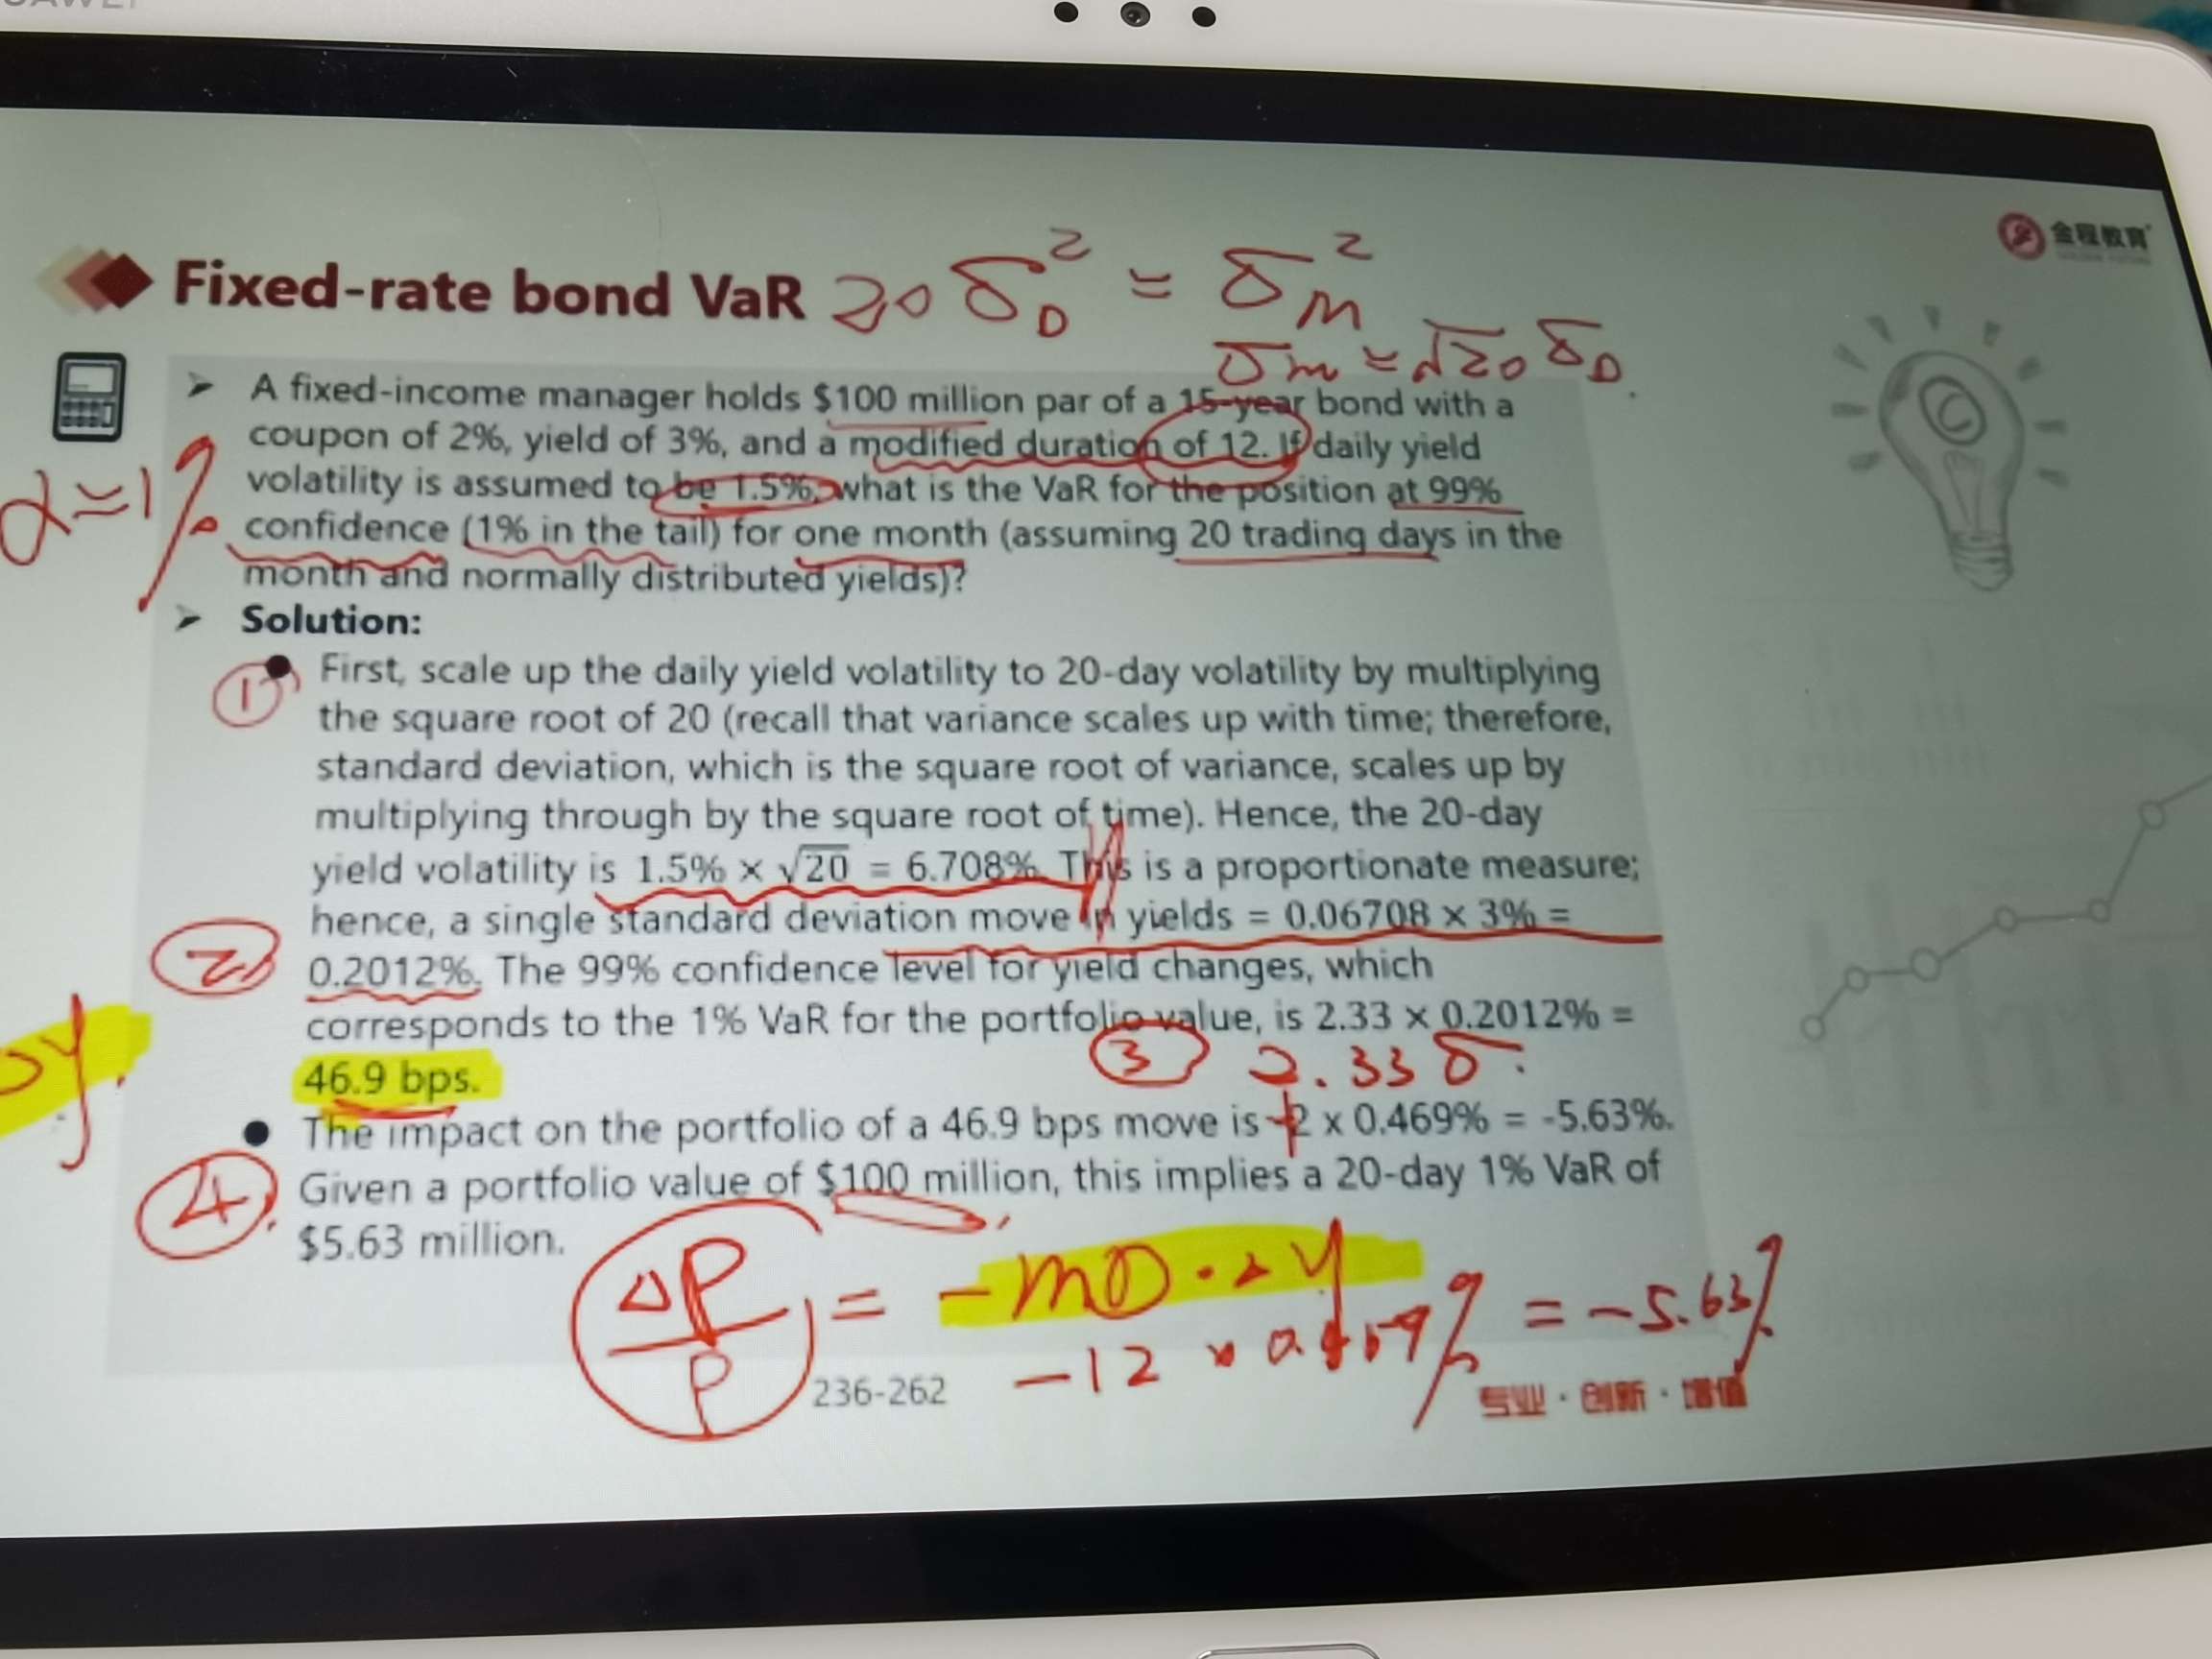 金程教育
Fixed-rate bond VaR 20 σ_D² = σ_m²
σm = √20 σ_D.
➤ A fixed-income manager holds $100 million par of a 15-year bond with a
coupon of 2%, yield of 3%, and a modified duration of 12. If daily yield
volatility is assumed to be 1.5%, what is the VaR for the position at 99%
α=1%
confidence (1% in the tail) for one month (assuming 20 trading days in the
month and normally distributed yields)?
➤ Solution:
① ● First, scale up the daily yield volatility to 20-day volatility by multiplying
the square root of 20 (recall that variance scales up with time; therefore,
standard deviation, which is the square root of variance, scales up by
multiplying through by the square root of time). Hence, the 20-day
yield volatility is 1.5% × √20 = 6.708%. This is a proportionate measure;
hence, a single standard deviation move in yields = 0.06708 × 3% =
② 0.2012%. The 99% confidence level for yield changes, which
corresponds to the 1% VaR for the portfolio value, is 2.33 × 0.2012% =
③ 2.33 σ.
46.9 bps.
● The impact on the portfolio of a 46.9 bps move is -12 x 0.469% = -5.63%.
④ Given a portfolio value of $100 million, this implies a 20-day 1% VaR of
$5.63 million.
ΔP/P = -MD · Δy
-12 × 0.469% = -5.63%
236-262
专业 · 创新 · 增值